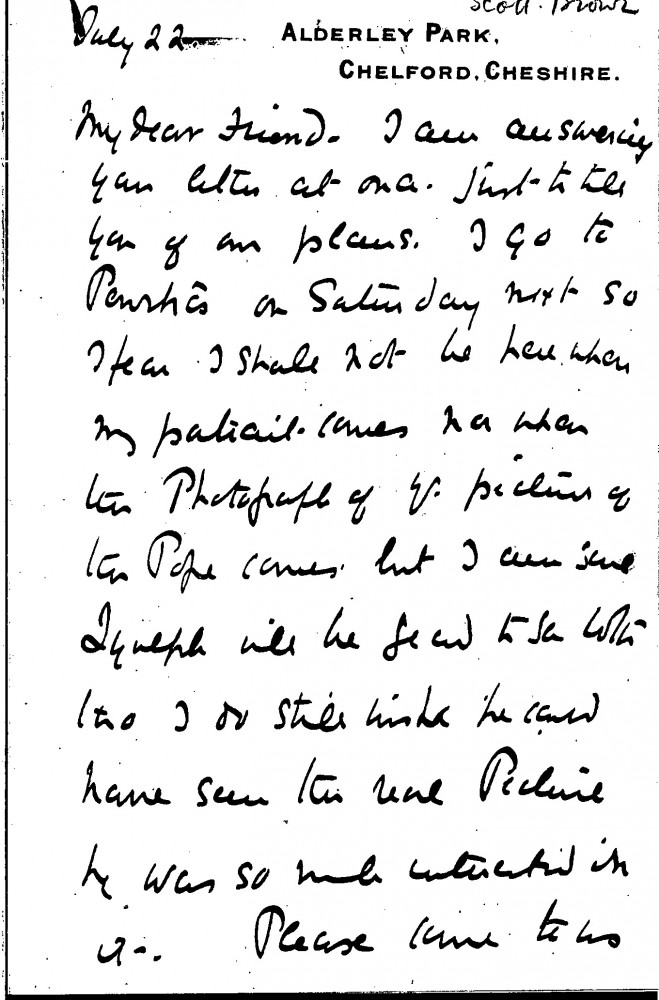 Scott. Brown
July 22
ALDERLEY PARK,
CHELFORD, CHESHIRE.
My dear Friend. I am answering
your letter at once. just to tell
you of our plans. I go to
Penrhôs on Saturday next so
I fear I shall not be here when
my portrait comes nor when
the Photograph of yr. picture of
the Pope comes. but I am sure
Lyulph will be glad to see both
tho I do still wish he could
have seen the real Picture
he was so much interested in
it. Please come to us